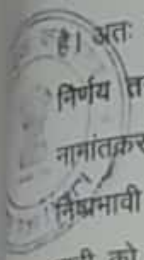 है। अतः
निर्णय त
नामांतकर
निष्प्रभावी
को